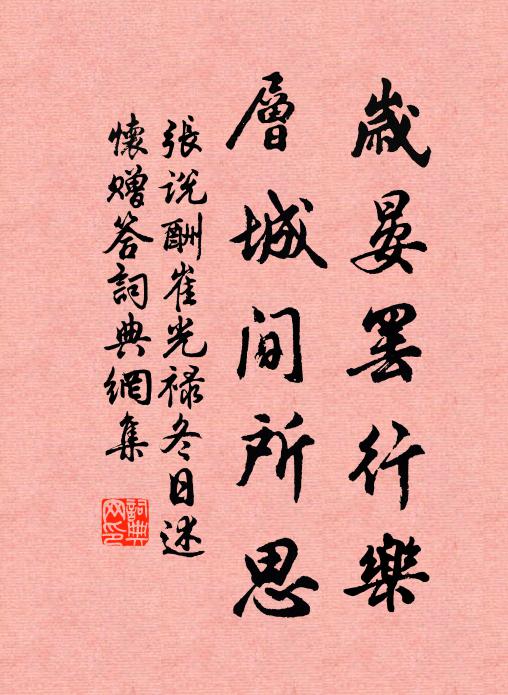 歲晏罷行樂
層城間所思
張說酬崔光祿冬日述
懷贈答詞典網集
詞典
网印